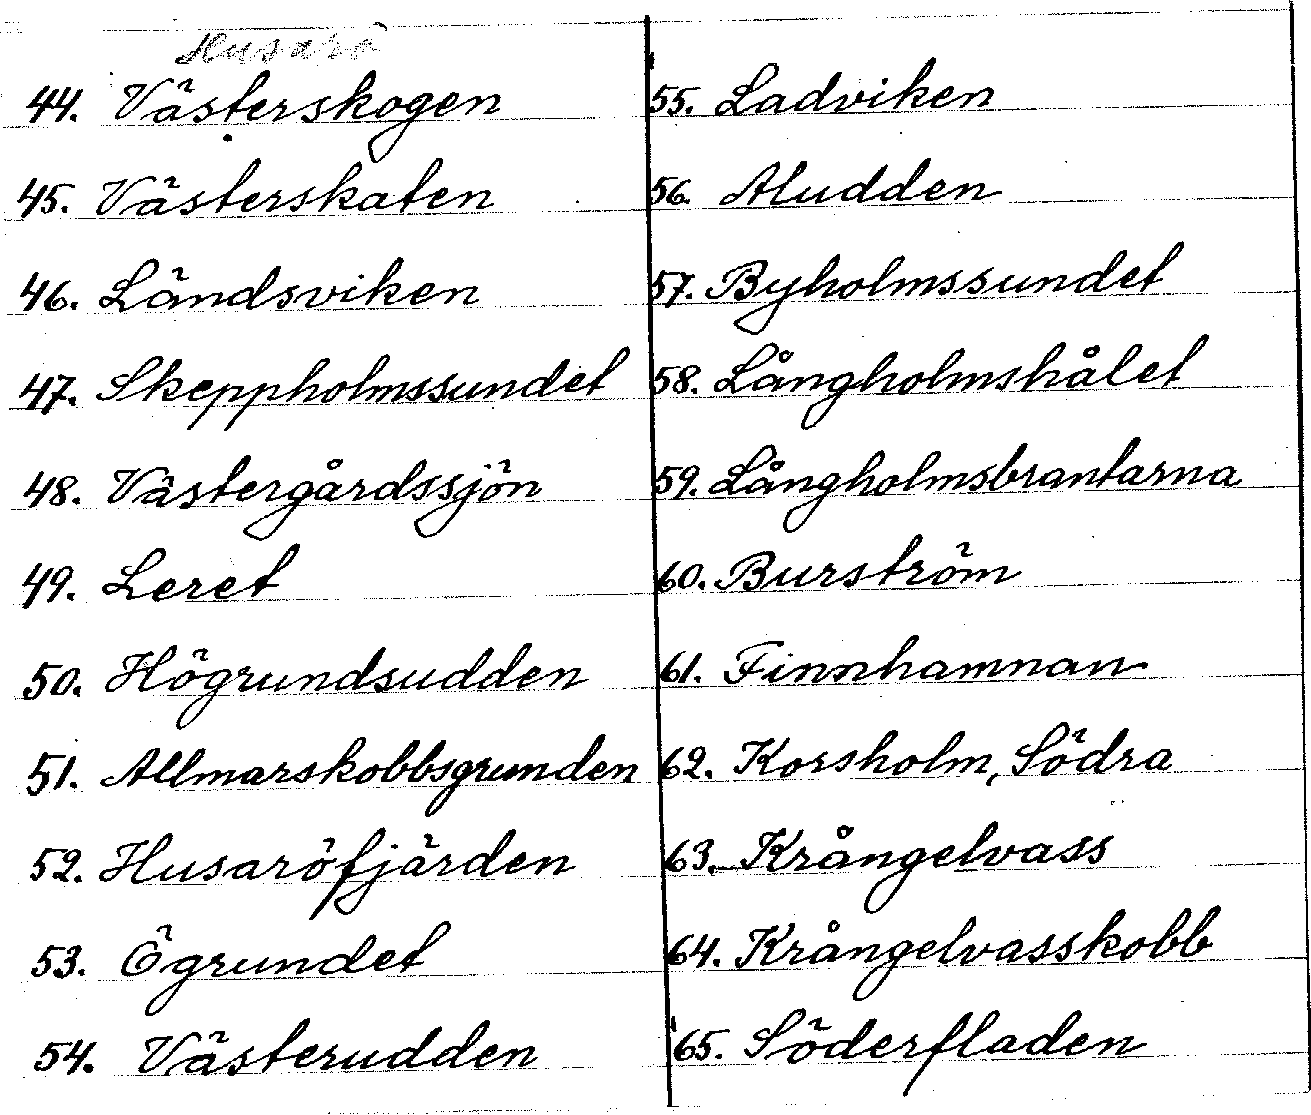 Husarö
44. Västerskogen
45. Västerskaten
46. Ländsviken
47. Skeppholmssundet
48. Västergårdssjön
49. Leret
50. Högrundsudden
51. Allmarskobbsgrunden
52. Husaröfjärden
53. Ögrundet
54. Västerudden
55. Ladviken
56. Aludden
57. Byholmssundet
58. Långholmshålet
59. Långholmsbrantarna
60. Burström
61. Finnhamnan
62. Korsholm, Södra
63. Krångelvass
64. Krångelvasskobb
65. Söderfladen